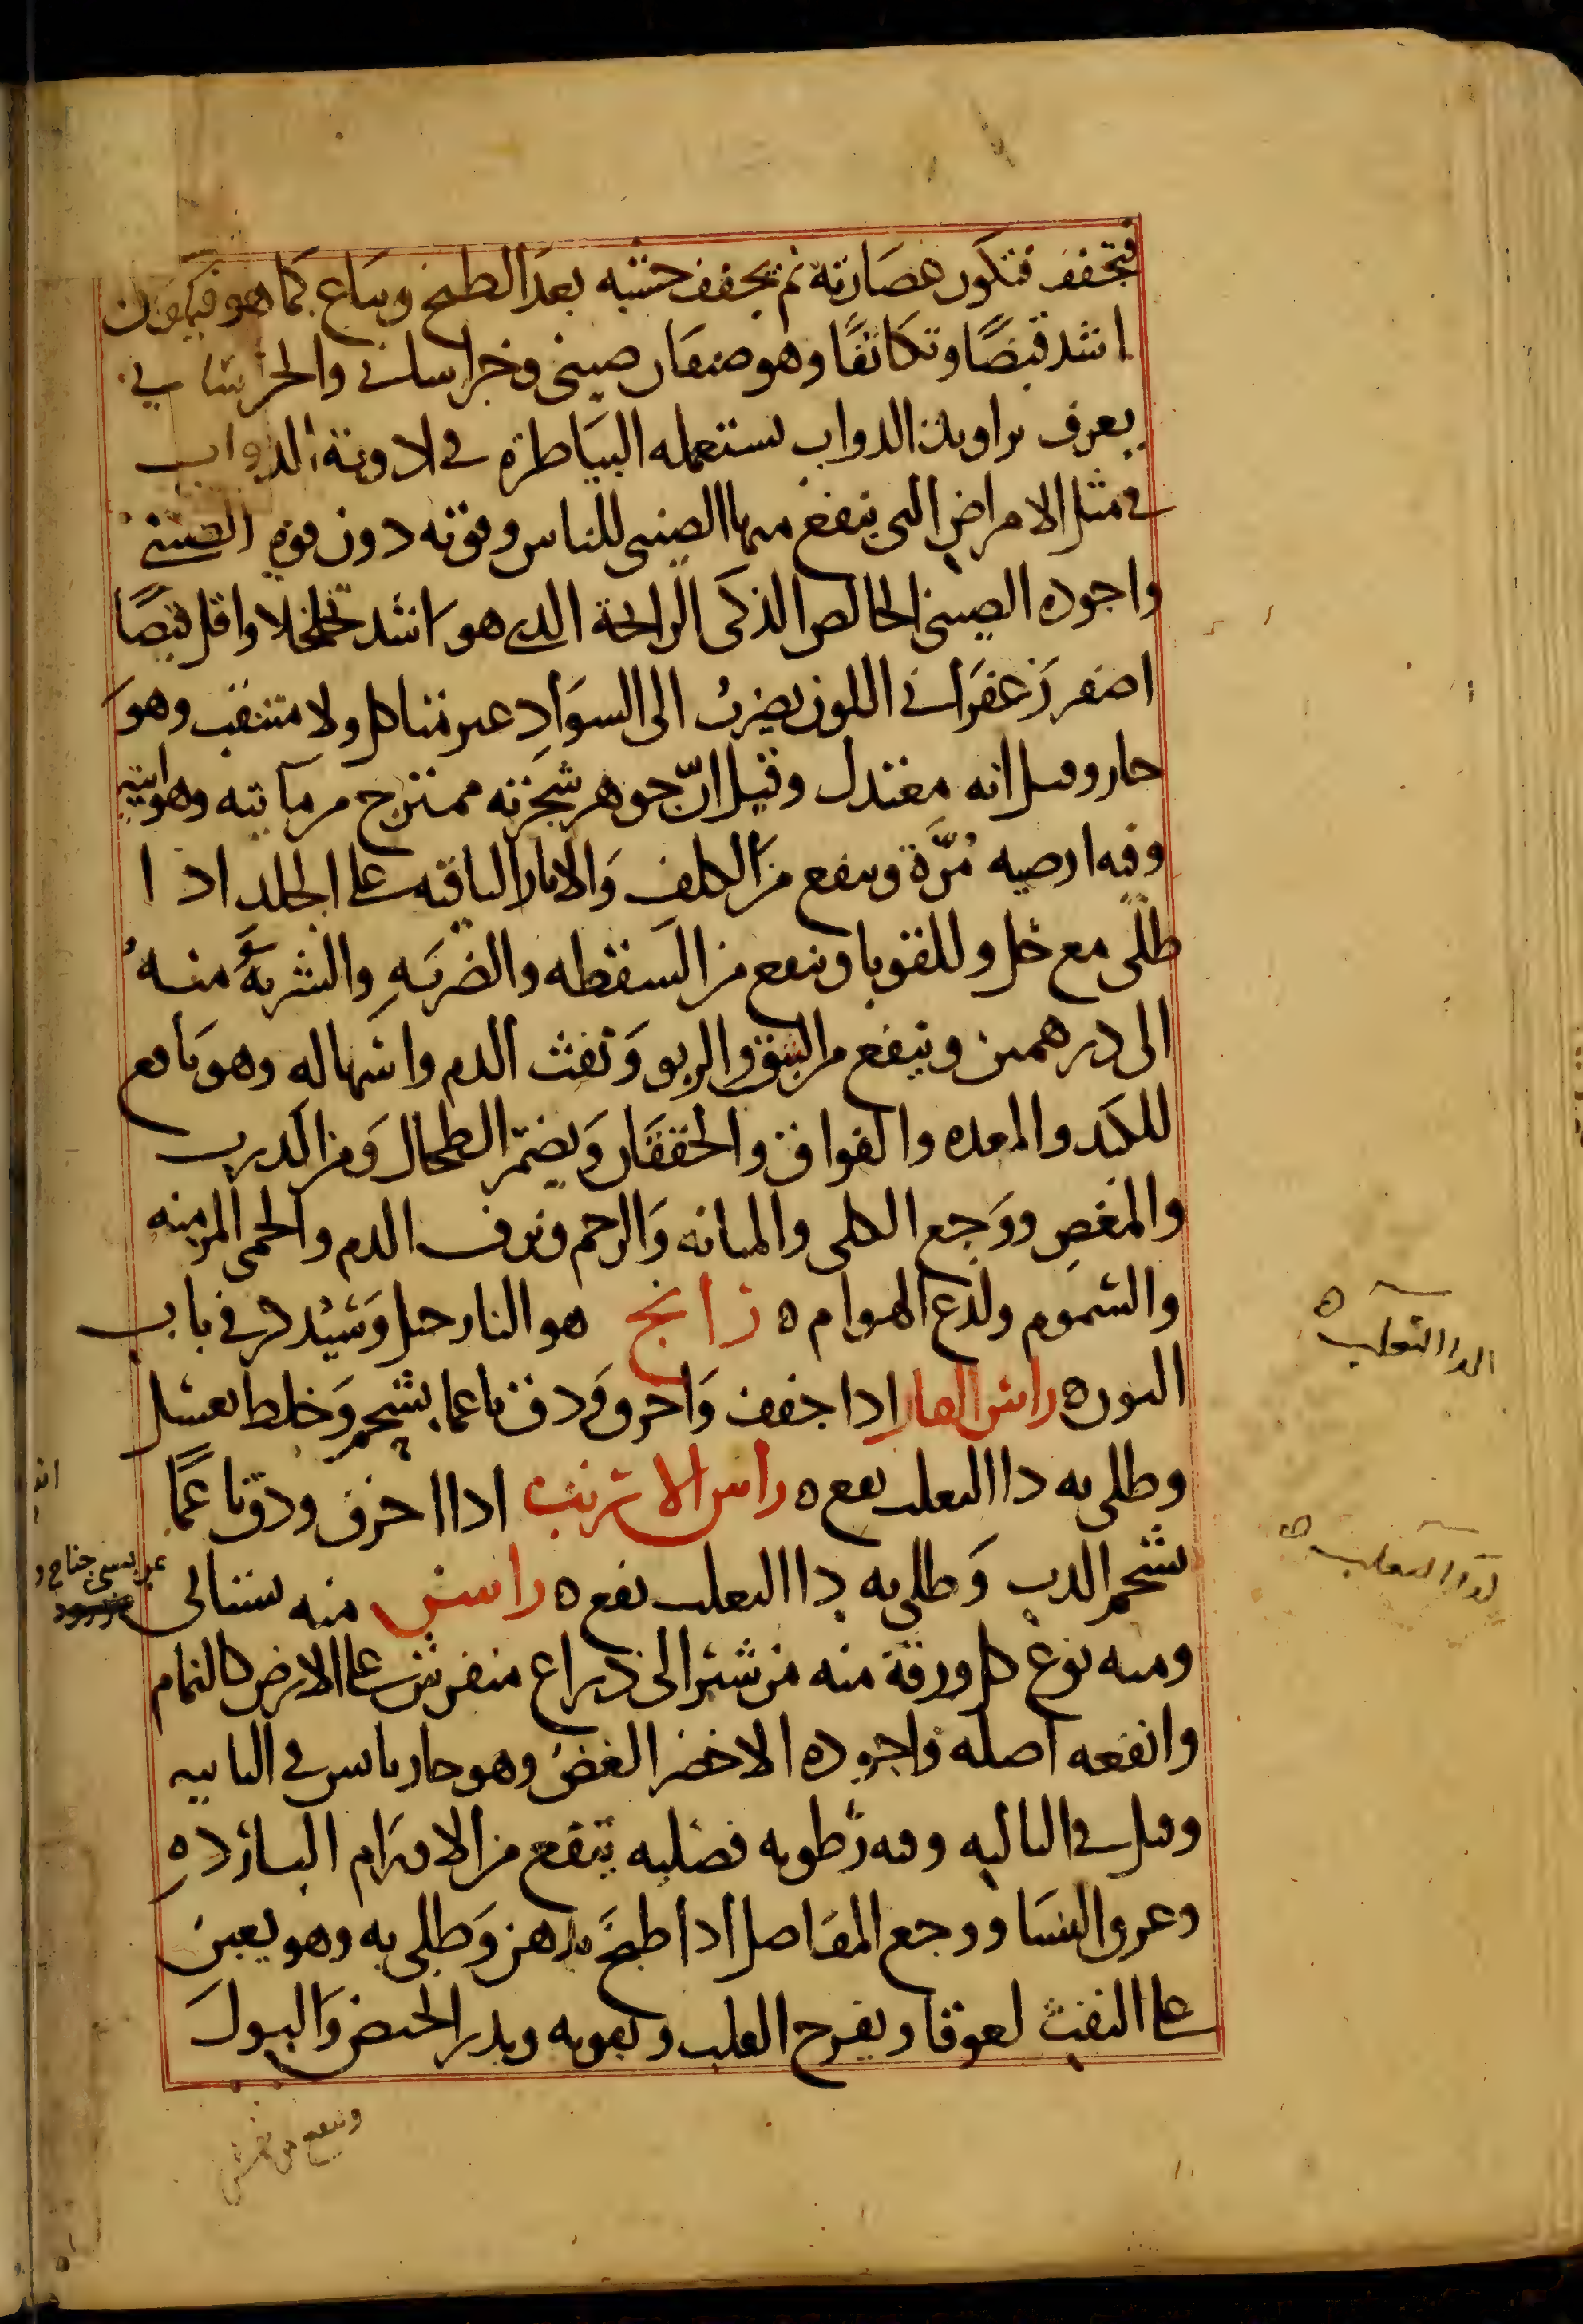 فتجفف فتكون عصارته ثم يجفف خشبه بعد الطبخ ويباع كما هو فيكون
اشد قبضًا وتكاثفًا وهو صنفان صينى وخراسانى والخراسانى
يعرف براوند الدواب يستعمله البياطرة فى ادوية الدواب
فى مثل الامراض التى ينفع منها الصينى للناس وقوته دون قوة الصينى
واجوده الصينى الخالص الذكى الرائحة الذى هو اشد تخلخلا واقل قبضًا
اصفر زعفرانى اللون يضرب الى السواد غير متاكل ولا متثقب وهو
حار وقيل انه معتدل وقيل انّ جوهر شجرته ممتزج من مائية وهوائية
وفيه ارضيه مُرَّة وينفع من الكلف والاثار الباقيه على الجلد اذا
طلى مع خل وللقوبا وينفع من السقطه والضربه والشربة منه
الى درهمين وينفع من الفتق والربو ونفث الدم واسهاله وهو نافع
للكبد والمعده والفواق والخفقان ويضمر الطحال ومن الذرب
والمغص ووجع الكلى والمثانه والرحم ونزف الدم والحمى المزمنه
والسموم ولدغ الهوام ه رانج هو النارجيل وسيذكر فى باب
النون ه راس الفار اذا جفف واحرق ودق ناعما بشحم وخلط بعسل
وطلى به دا الثعلب نفع ه راس الارنب اذا احرق ودق ناعمًا
بشحم الدب وطلى به دا الثعلب نفع ه راسن منه بستانى
ومنه نوع كل ورقة منه من شبر الى ذراع منفرش على الارض كالنمام
وانفعه اصله واجوده الاخضر الغض وهو حار يابس فى الثانيه
وقيل فى الثالثه وفيه رطوبه فضليه ينفع من الاورام الباردة
وعرق النسا ووجع المفاصل اذا طبخ بدهن وطلى به وهو يعين
على النفث لعوقا ويفرح القلب ويقويه ويدر الحيض والبول
وينفع من نهش
الدا الثعلب ه
لدا الثعلب ه